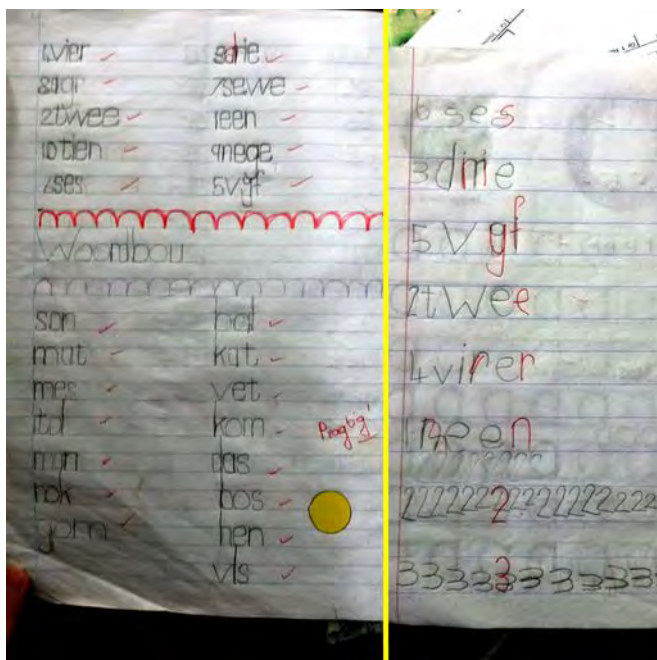 4vier
8agt
2twee
10tien
6ses
3drie
7sewe
1een
9nege
5vyf
Woordbou
son
mat
mes
tol
myn
rok
gom
bal
kat
vet
kom
das
bos
hen
vis
Pragtig!
6 ses
3drie
5 vyf
2twee
4virer
1een
222222222222222
333333333333